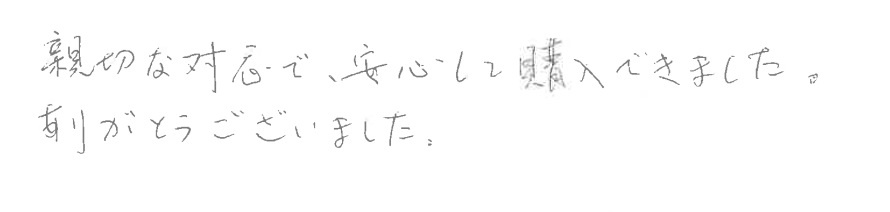 親切な対応で、安心して購入できました。
ありがとうございました。